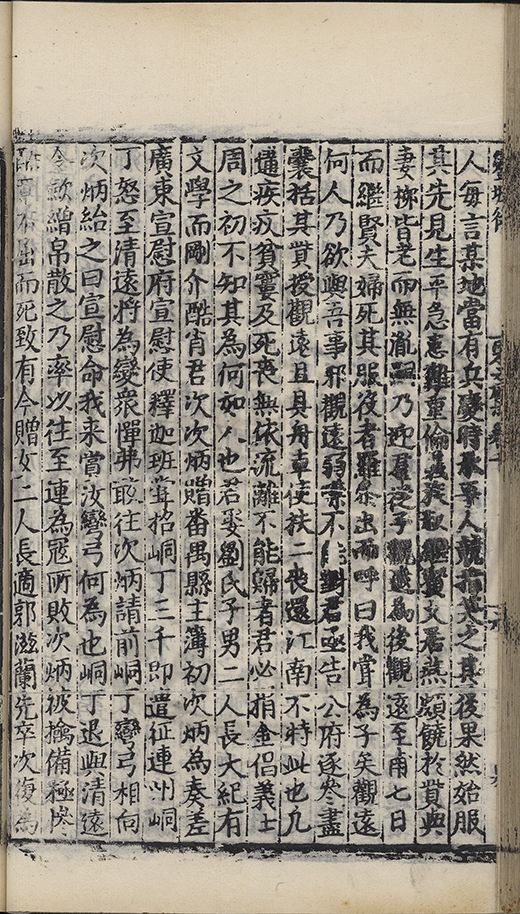 人每言某地當有兵變時承平人競指笑之其後果然始服
其先見生平急惠難重倫義族叔繼賢父居燕頗饒於貲與
妻柳皆老而無胤嗣乃迎羣從子觀遠為後觀遠至甫七日
而繼賢夫婦死其服役者羅拜出而呼曰我嘗為子矣觀遠
何人乃欲與吾事邪觀遠弱不能對君亟告公府逐參盡
囊括其貲授觀遠且具舟車使扶二喪還江南不時此也凡
遘疾疫貧窶及死喪無依流離不能歸者君必指金倡義士
周之初不知其為何如人也君娶劉氏子男二人長大紀有
文學而剛介酷肖君次次炳贈番禺縣主簿初次炳為奏差
廣東宣慰府宣慰使釋迦班嘗招峒丁三千即遣征連州峒
丁怒至清遠將為變眾憚弗敢往次炳請前峒丁彎弓相向
次炳紿之曰宣慰命我來賞汝彎弓何為也峒丁退與清遠
令斂繒帛散之乃率以往至連為冦所敗次炳被擒備極慘
酷不屈而死致有今贈女二人長適郭滋蘭先卒次復為